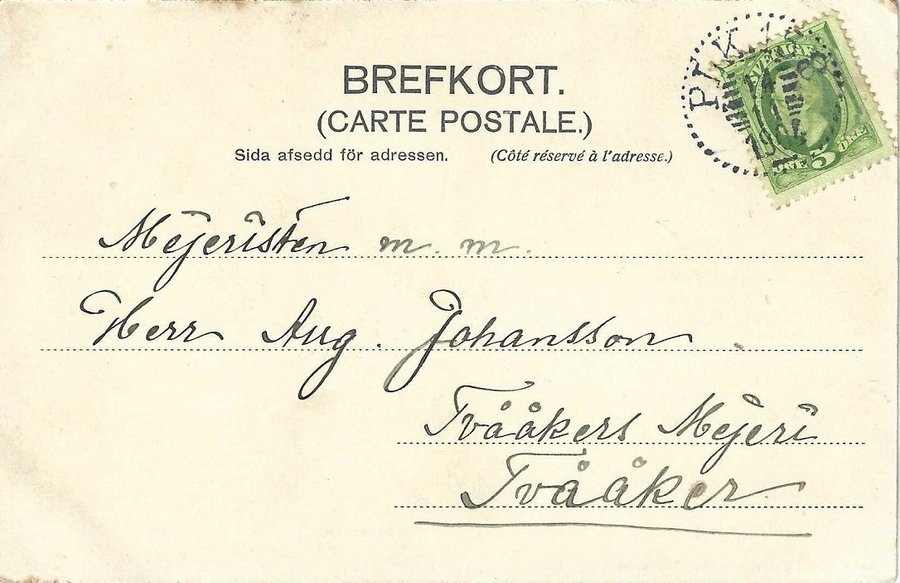 BREFKORT.
(CARTE POSTALE.)
Sida afsedd för adressen. (Côté réservé à l'adresse.)
SVERIGE
5 ÖRE
Mejeristen m. m.
Herr Aug. Johansson
Tvååkers Mejeri
Tvååker